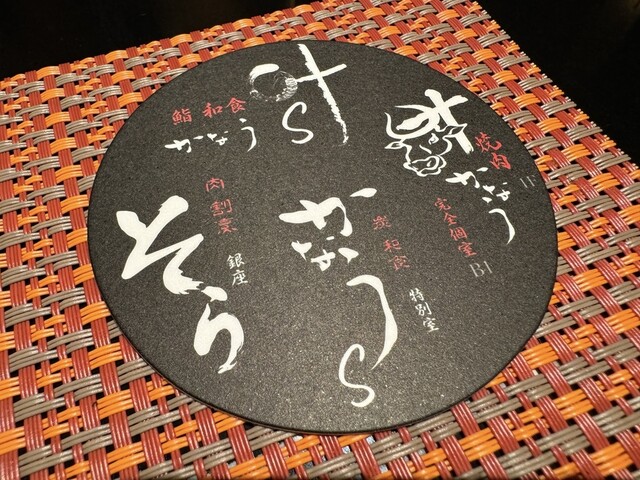 鮨 和食
かなう
叶s
焼肉
かなう
1F
完全個室
B1
肉割烹
そら
銀座
炭和食
かなう s
特別室